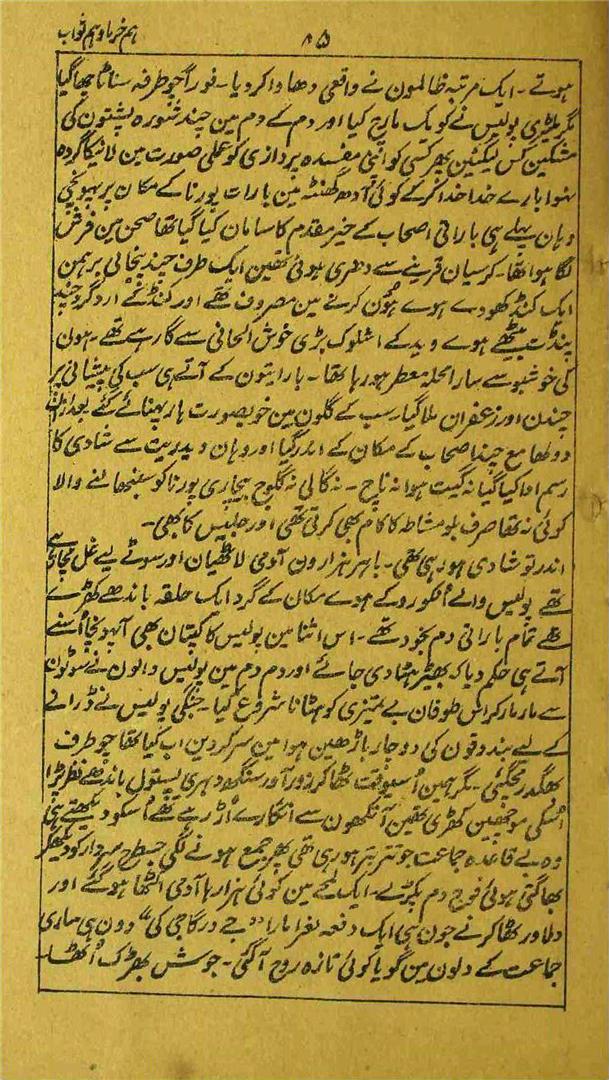 ۸۵
ہم خرما و ہم ثواب
ہوتے ۔ ایک مرتبہ ظالمون نے واقعی دھاوا کر دیا ۔ فوراً چو طرفہ سناٹا چھا گیا
مگر ملٹری پولیس نے کویک مارچ کیا اور دم کے دم مین چند شورہ پشتون کی
مشکین کس لیگئین پھر کسی کو اپنی مفسدہ پردازی کو عملی صورت مین لانیکا گردہ
نہوا بارے خدا خدا کرکے کوئی آدھ گھنٹہ مین بارات پورنا کے مکان پر پہونچی
وہان پہلے ہی باراتی اصحاب کے خیر مقدم کا سامان کیا گیا تھا صحن مین فرش
لگا ہوا تھا ۔ کرسیان قرینے سے دھری ہوئی تھین ایک طرف چند پنجابی برہمن
ایک کنڈ کھودے ہوے ہون کرنے مین مصروف تھے اور کنڈ کے ارد گرد چند
پنڈت بیٹھے ہوے وید کے اشلوک بڑی خوش الحانی سے گا رہے تھے ۔ ہون
کی خوشبو سے سارا محلہ معطر ہو رہا تھا ۔ باراتیون کے آتے ہی سب کی پیشانی پر
چندن اور زعفران ملا گیا ۔ سب کے گلون مین خوبصورت ہار پہنائے گئے بعد ازان
دولھا مع چند اصحاب کے مکان کے اندر گیا اور وہان ویدریت سے شادی کا
رسم ادا کیا گیا نہ گیت ہوا نہ ناچ ۔ نہ گالی نہ گلوج بیچاری پورنا کو سنبھالنے والا
کوئی نہ تھا صرف بلو مشاطہ کا کام بھی کرتی تھی اور جلیس کا بھی ۔
اندر تو شادی ہو رہی تھی ۔ باہر ہزارون آدمی لاٹھیان اور سوٹے لیے غل مچا رہے
تھے پولیس والے اُنکو روکے ہوے مکان کے گرد ایک حلقہ باندھے کھڑے
تھے تمام باراتی دم بخود تھے ۔ اس اثنا مین پولیس کا کپتان بھی آپہونچا اُسنے
آتے ہی حکم دیا کہ بھیڑ ہٹا دی جائے اور دم دم مین پولیس والون نے سوٹون
سے مار مار کر اس طوفان بے تمیزی کو ہٹانا شروع کیا ۔ جنگی پولیس نے ڈرانے
کے لیے بندوقون کی دو چار باڑھین ہوا مین سر کردین اب کیا تھا چو طرف
بھگدر مچگئی ۔ مگر ہمین اُسیوقت ٹھاکر زور آور سنگھ دوہری پستول باندھے نظر پڑا
اُسکی موچھین کھڑی تھین آنکھون سے انگارے اُڑ رہے تھے اُسکو دیکھتے ہی
وہ بے قاعدہ جماعت جو تتر بتر ہو رہی تھی پھر جمع ہونے لگی جسطرح سردار کو دیکھکر
بھاگتی ہوئی فوج دم پکڑے ۔ ایک لمحے مین کوئی ہزارہا آدمی اکٹھا ہو گئے اور
دلاور ٹھاکر نے جون ہی ایک دفعہ نعرا مارا ”جے درگا جی کی“ وون ہی ساری
جماعت کے دلون مین گویا کوئی تازہ روح آگئی ۔ جوش بھڑک اُٹھا ۔